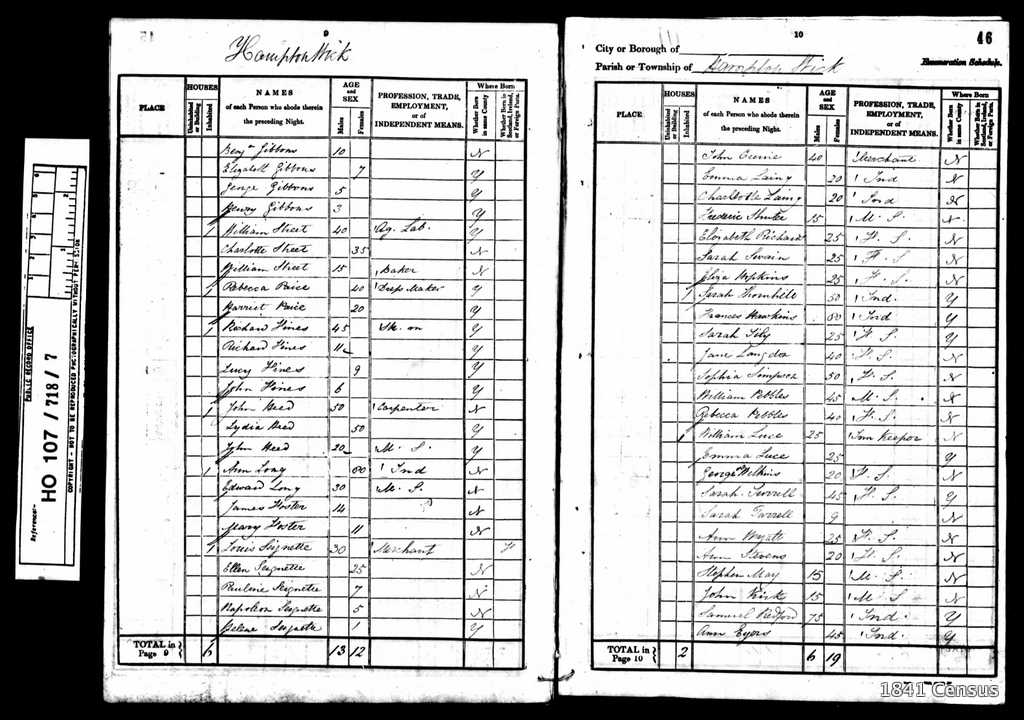 PUBLIC RECORD OFFICE
Reference:-
HO 107 / 718 / 7
COPYRIGHT - NOT TO BE REPRODUCED PHOTOGRAPHICALLY WITHOUT PERMISSION
9
Hampton Wick
PLACE HOUSES NAMES AGE and SEX PROFESSION, TRADE, EMPLOYMENT, or of INDEPENDENT MEANS. Where Born
Uninhabited or Building Inhabited of each Person who abode therein the preceding Night. Males Females Whether Born in same County Whether Born in Scotland, Ireland, or Foreign Parts.
Benjn Gibbons 10 N
Elizabeth Gibbons 7 Y
George Gibbons 5 Y
Henry Gibbons 3 Y
1 William Street 40 Ag. Lab. Y
Charlotte Street 35 N
William Street 15 Baker N
1 Rebecca Paice 40 Dress Maker Y
Harriet Paice 20 Y
1 Richard Hines 45 Y
Richard Hines 11 Y
Lucy Hines 9 Y
John Hines 6 Y
1 John Heed 50 Carpenter N
Lydia Heed 50 Y
John Heed 20 M. S. Y
1 Ann Long 60 Ind N
Edward Long 30 M. S. N
James Foster 14 N
Mary Foster 11 N
1 Louis Seignette 30 Merchant F
Ellen Seignette 25 N
Pauline Seignette 7 N
Napoleon Seignette 5 N
Helene Seignette 1 Y
TOTAL in Page 9 6 13 12
10
46
City or Borough of
Parish or Township of Hampton Wick
Enumeration Schedule.
PLACE HOUSES NAMES AGE and SEX PROFESSION, TRADE, EMPLOYMENT, or of INDEPENDENT MEANS. Where Born
Uninhabited or Building Inhabited of each Person who abode therein the preceding Night. Males Females Whether Born in same County Whether Born in Scotland, Ireland, or Foreign Parts.
John Currie 40 Merchant N
Emma Laing 20 Ind N
Charlotte Laing 20 Ind N
Frederic 15 M. S. N
Elizabeth Richard 25 F. S. N
Sarah Swain 25 F. S. N
Eliza Hopkins 25 F. S. N
1 Sarah Thornhill 50 Ind. Y
Frances Hawkins 60 Ind Y
Sarah Lily 25 F. S. Y
Jane Langdon 40 F. S. N
Sophia Simpson 30 F. S. N
William Pebbles 45 M. S. N
Rebecca Pebbles 40 F. S. N
1 William Luce 25 Inn Keeper N
Emma Luce 25 Y
George Wilkins 20 S. N
Sarah Turrell 45 F. S. Y
Sarah Turrell 9 N
Ann Wyatt 25 F. S. N
Ann Stevens 20 F. S. N
Stephen May 15 M. S. N
John Kirk 15 M. S N
Samuel Redford 75 Ind Y
Ann Eyers 45 Ind. Y
TOTAL in Page 10 2 6 19
1841 Census